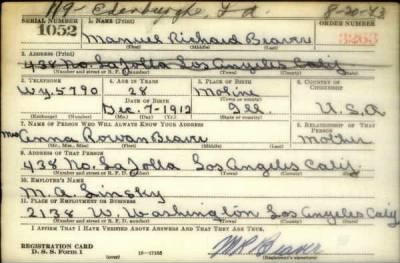 8-20-43
SERIAL NUMBER 1. NAME (Print) ORDER NUMBER
1052 Manuel Richard Beaver 3263
(First) (Middle) (Last)
2. ADDRESS (Print)
438 No. La Jolla Los Angeles Calif
(Number and street or R. F. D. number) (Town) (County) (State)
3. TELEPHONE 4. AGE IN YEARS 5. PLACE OF BIRTH 6. COUNTRY OF CITIZENSHIP
Wy. 5790 28 Moline
DATE OF BIRTH (Town or county)
Dec. 7-1912 Ill. U.S.A
(Exchange) (Number) (Mo.) (Day) (Yr.) (State or country)
7. NAME OF PERSON WHO WILL ALWAYS KNOW YOUR ADDRESS 8. RELATIONSHIP OF THAT PERSON
Mrs Anna Rowan Beaver Mother
(Mr., Mrs., Miss) (First) (Middle) (Last)
9. ADDRESS OF THAT PERSON
438 No. La Jolla Los Angeles Calif
(Number and street or R. F. D. number) (Town) (County) (State)
10. EMPLOYER'S NAME
M. A.
11. PLACE OF EMPLOYMENT OR BUSINESS
2138 W. Washington Los Angeles Calif
(Number and street or R. F. D. number) (Town) (County) (State)
I AFFIRM THAT I HAVE VERIFIED ABOVE ANSWERS AND THAT THEY ARE TRUE.
REGISTRATION CARD
D. S. S. Form 1
(Registrant's signature)